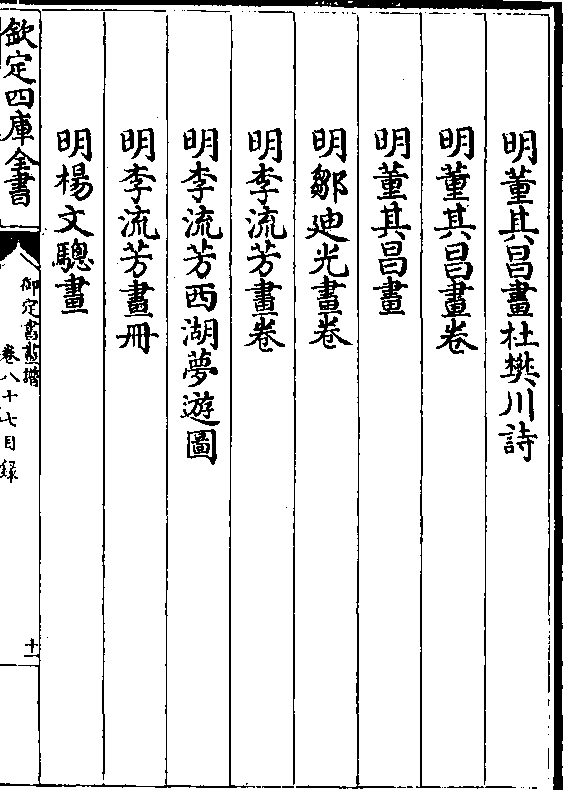 明董其昌畫杜樊川詩
明董其昌畫卷
明董其昌畫
明鄒迪光畫卷
明李流芳畫卷
明李流芳西湖夢遊圖
明李流芳畫冊
明楊文驄畫
欽定四庫全書
御定書畫譜
卷八十七目録
十一